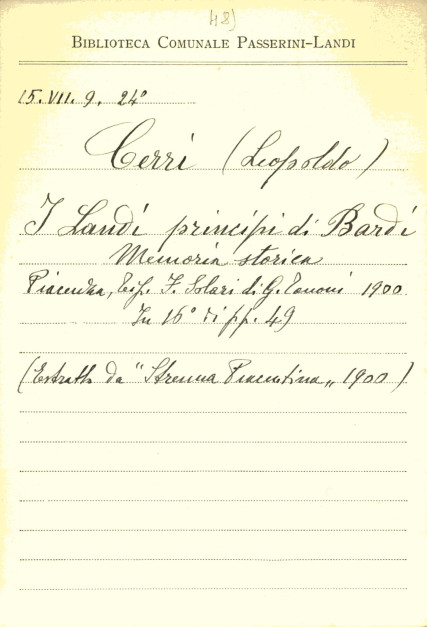 48)
BIBLIOTECA COMUNALE PASSERINI-LANDI
15. VII. 9. 24°
Cerri (Leopoldo)
I Landi principi di Bardi
Memoria storica
Piacenza, Tip. F. Solari di G. Tononi 1900
In 16° di pp. 49
(Estratto da "Strenna Piacentina„ 1900)